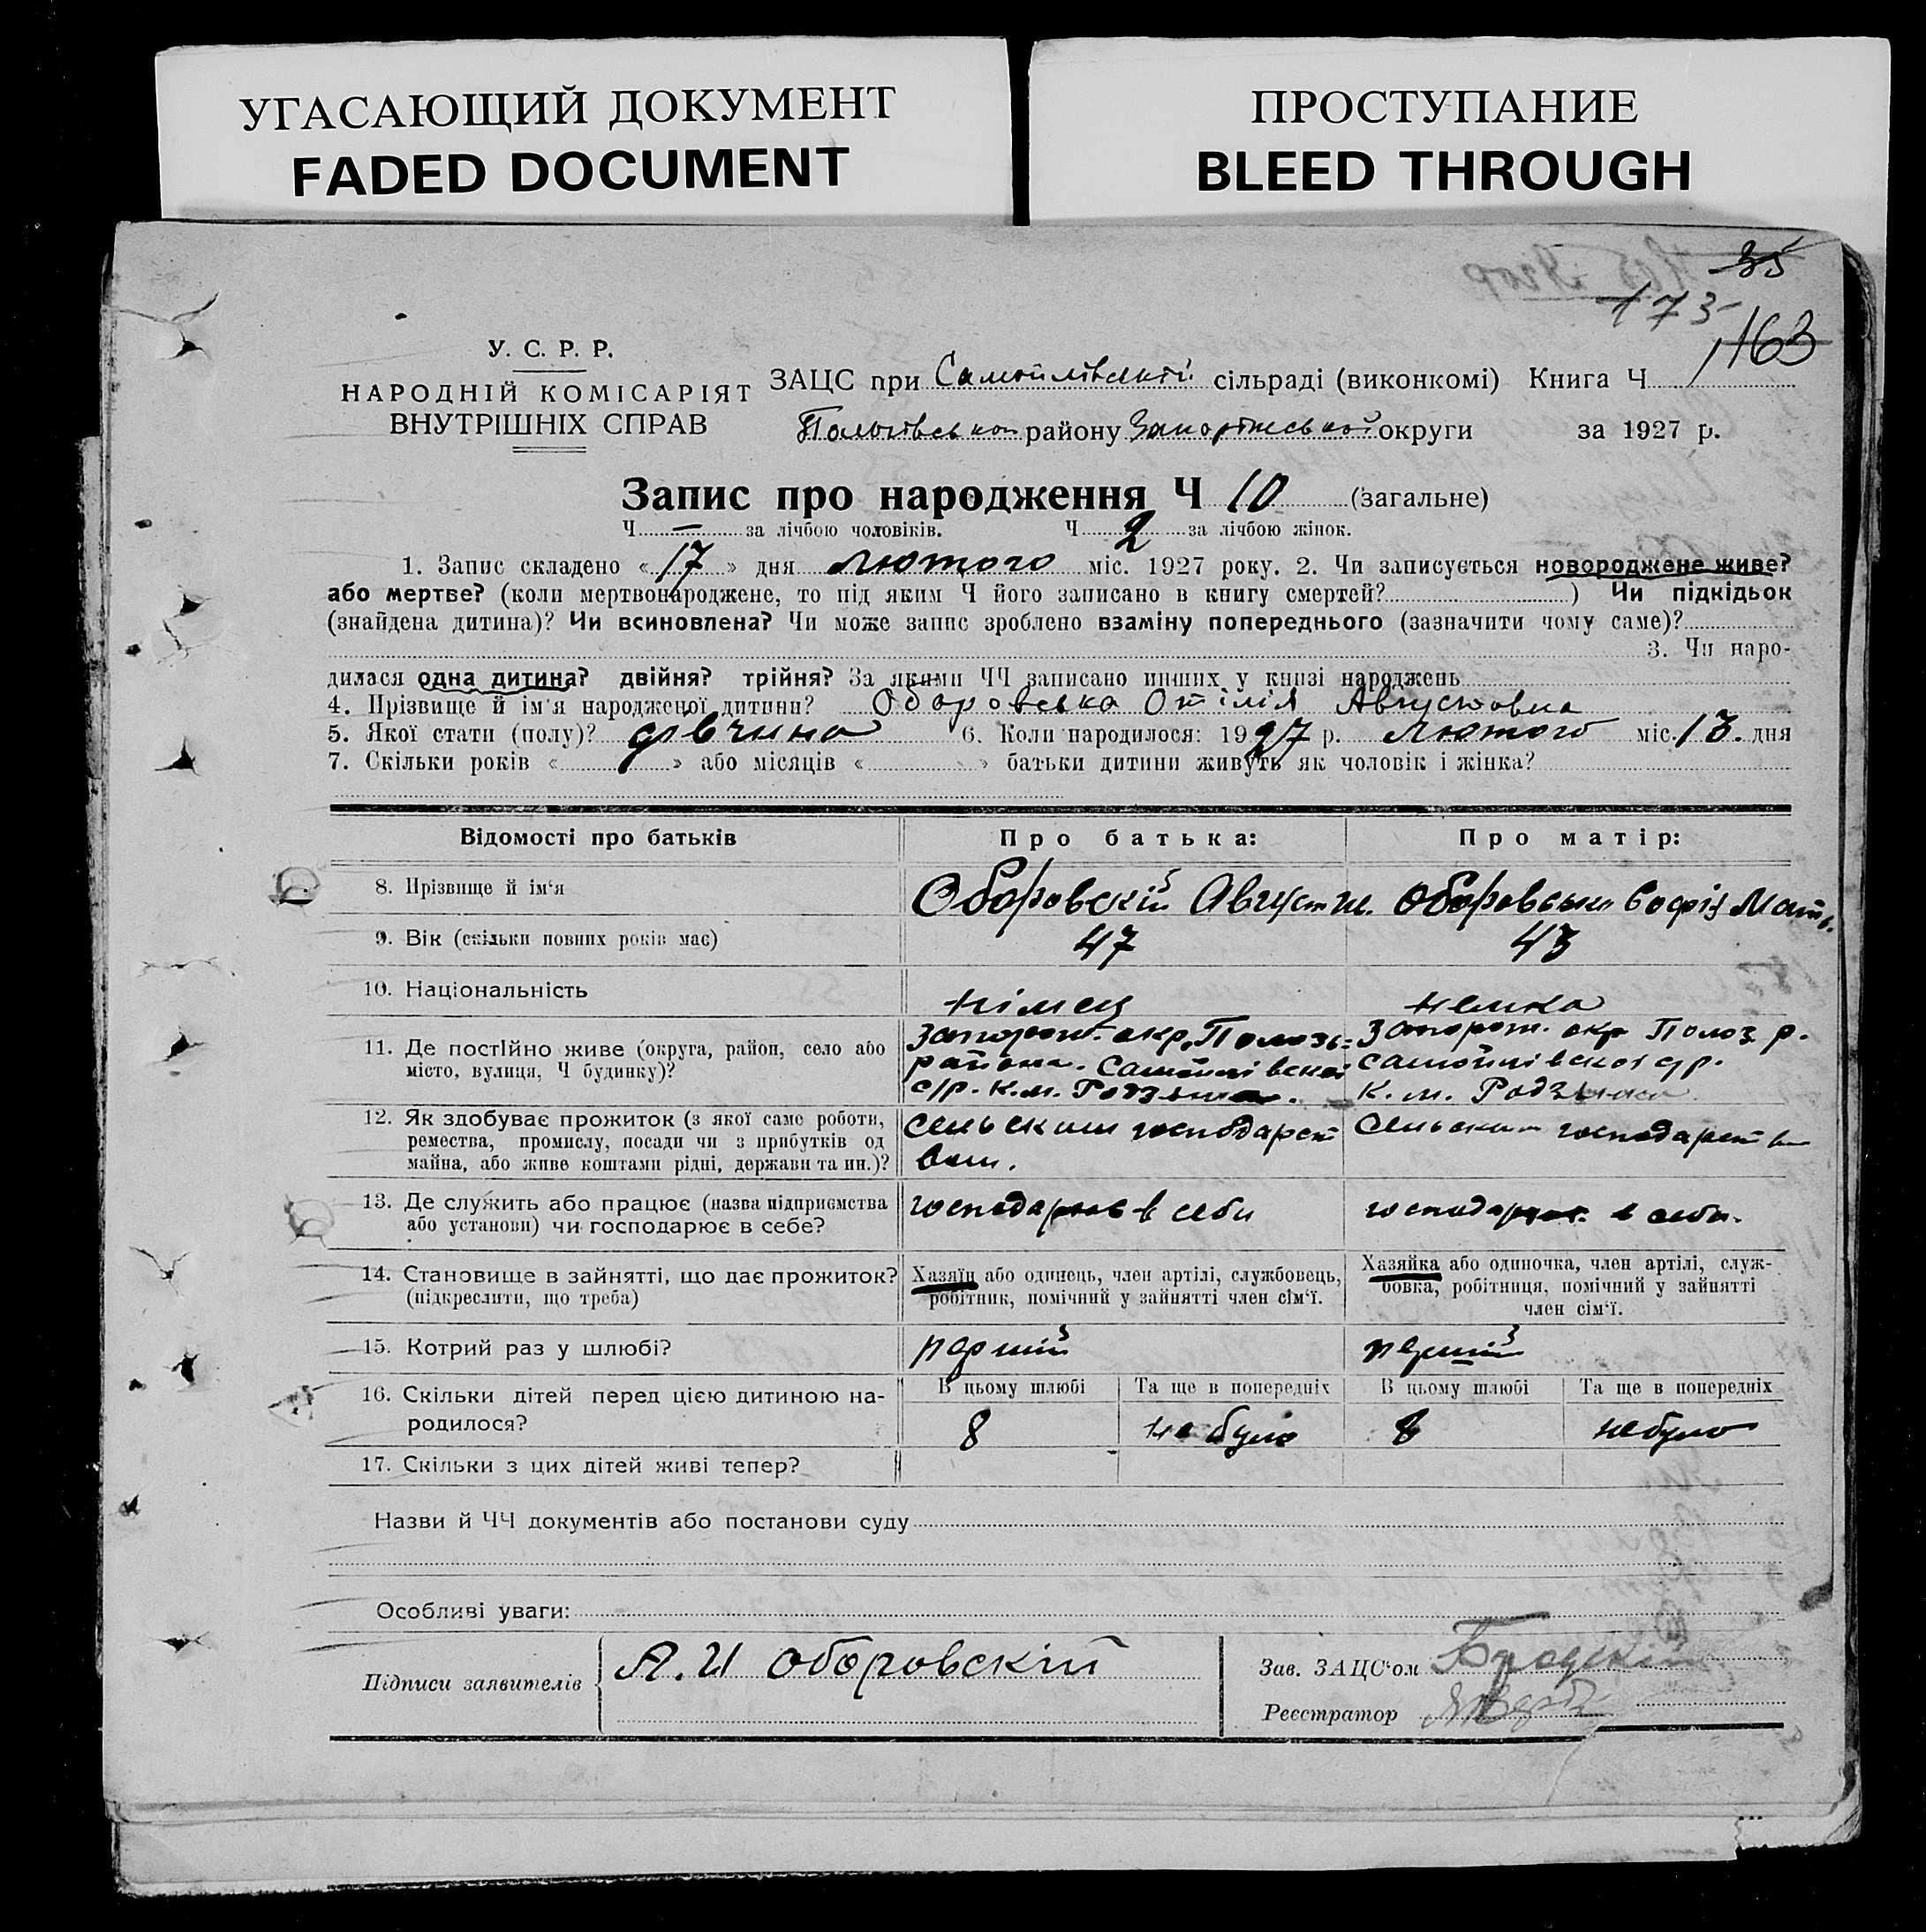 УГАСАЮЩИЙ ДОКУМЕНТ
FADED DOCUMENT
ПРОСТУПАНИЕ
BLEED THROUGH
35
173
163
У. С. Р. Р.
НАРОДНІЙ КОМІСАРІЯТ
ВНУТРІШНІХ СПРАВ
ЗАЦС при Самойлівській сільраді (виконкомі) Книга Ч
району Запоріжської округи за 1927 р.
Запис про народження Ч 10 (загальне)
Ч — за лічбою чоловіків. Ч 2 за лічбою жінок.
1. Запис складено « 17 » дня лютого міс. 1927 року. 2. Чи записується новороджене живе?
або мертве? (коли мертвонароджене, то під яким Ч його записано в книгу смертей? ) Чи підкідьок
(знайдена дитина)? Чи всиновлена? Чи може запис зроблено взаміну попереднього (зазначити чому саме)?
3. Чи наро-
дилася одна дитина? двійня? трійня? За якими ЧЧ записано инших у книзі народжень
4. Прізвище й ім'я народженої дитини? Оборовська Отілія Августовна
5. Якої стати (полу)? дівчина 6. Коли народилося: 1927 р. лютого міс. 13. дня
7. Скільки років « » або місяців « » батьки дитини живуть як чоловік і жінка?
Відомості про батьків Про батька: Про матір:
8. Прізвище й ім'я Оборовскій Август Оборовська Софія
9. Вік (скільки повних років має) 47 43
10. Національність німец немка
11. Де постійно живе (округа, район, село або
місто, вулиця, Ч будинку)?
Запорож. окр. Полозь-
района. Самойлівской
с/р. к.м.
Запорож. окр Полоз р.
Самойлівскоі с/р.
к. м.
12. Як здобуває прожиток (з якої саме роботи,
ремества, промислу, посади чи з прибутків од
майна, або живе коштами рідні, держави та ин.)?
сельским господарст
вом.
Сельским господарств
13. Де служить або працює (назва підприємства
або установи) чи господарює в себе?
господарює в себи
господарює в себи.
14. Становище в зайнятті, що дає прожиток?
(підкреслити, що треба)
Хазяїн або одинець, член артілі, службовець,
робітник, помічний у зайнятті член сім'ї.
Хазяйка або одиночка, член артілі, служ-
бовка, робітниця, помічний у зайнятті
член сім'ї.
15. Котрий раз у шлюбі? перший перший
16. Скільки дітей перед цією дитиною на-
родилося?
В цьому шлюбі Та ще в попередніх В цьому шлюбі Та ще в попередніх
8 не було 8 не було
17. Скільки з цих дітей живі тепер?
Назви й ЧЧ документів або постанови суду
Особливі уваги:
Підписи заявителів А. И Оборовскій
Зав. ЗАЦС'ом
Реєстратор